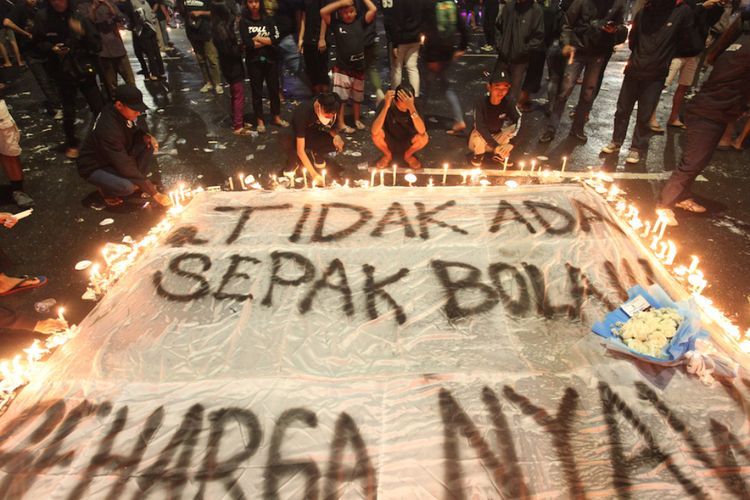 TIDAK ADA
SEPAK BOLA
SEHARGA NYAWA